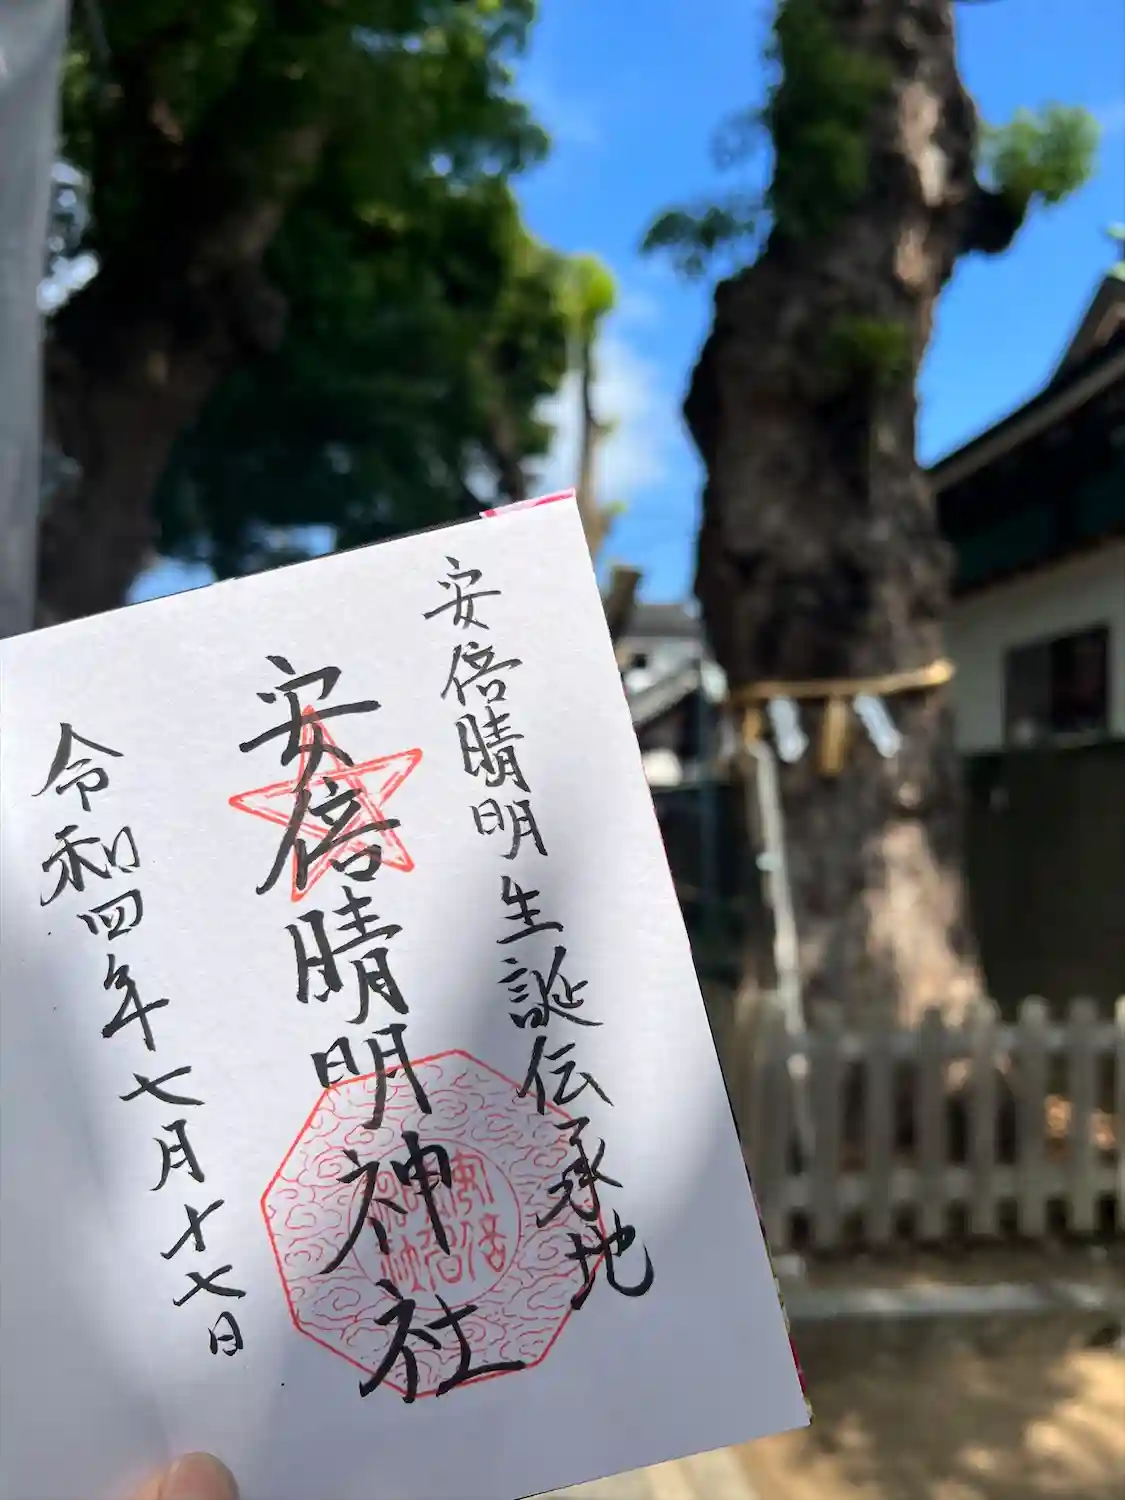 安倍晴明生誕伝承地
安倍晴明神社
令和四年七月十七日